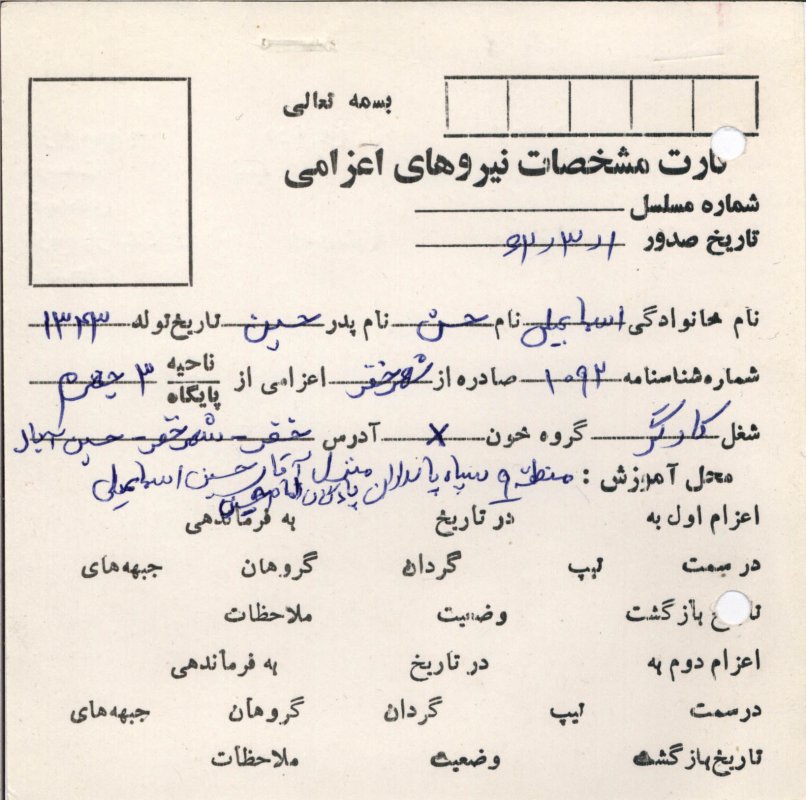 بسمه تعالی
کارت مشخصات نیروهای اعزامی
شماره مسلسل
تاریخ صدور ۶۲/۳/۱
نام خانوادگی اسماعیلی نام حسن نام پدر حسین تاریخ تولد ۱۳۴۳
شماره شناسنامه ۱۰۹۲ صادره از شهر خفر اعزامی از ناحیه پایگاه ۳ جهرم
شغل کارگر گروه خون X آدرس خفر - شهر خفر - حسین آباد
منزل آقای حسین اسماعیلی
محل آموزش : منطقه ۹ سپاه پاسداران پادگان امام حسین
اعزام اول به در تاریخ به فرماندهی
در سمت تیپ گردان گروهان جبهه‌های
تاریخ بازگشت وضعیت ملاحظات
اعزام دوم به در تاریخ به فرماندهی
در سمت تیپ گردان گروهان جبهه‌های
تاریخ بازگشت وضعیت ملاحظات